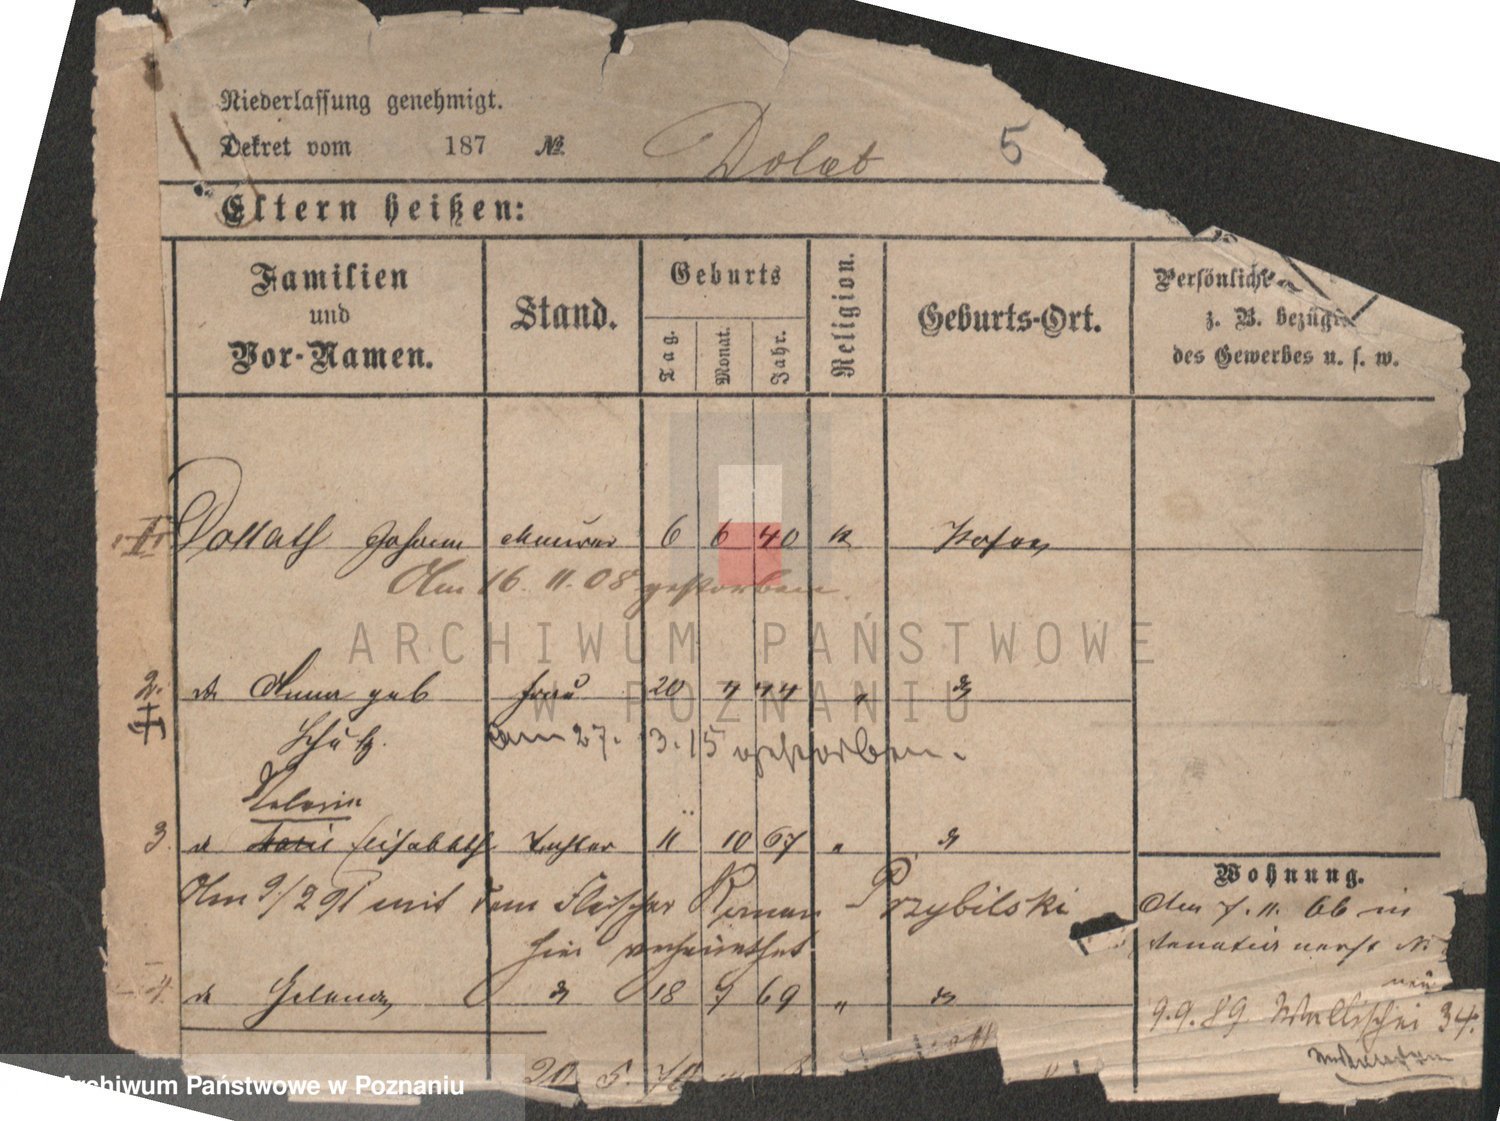 Niederlassung genehmigt.
Dekret vom 187 № Dolat 5
Eltern heißen:
Familien und Vor-Namen.
Stand.
Geburts
Tag.
Monat.
Jahr.
Religion.
Geburts-Ort.
Persönliche
z. B. bezügl.
des Gewerbes u. s. w.
Dollath Johann Maurer 6 6 40 K Posen
Am 16. 11. 08 gestorben.
2. Anna geb Frau 20 4 44 "
Schütz.
am 27. 3. 15 gestorben.
Valeria
3. Elisabeth Tochter 11 10 67 "
Am 9/2 91 mit dem Fleischer Roman Przybilski
hier verheirathet
4. 18 9 69 "
20 5. 70
Wohnung.
den 7. 11. 66 in
9.9.89 Wallischei 34.
ARCHIWUM PAŃSTWOWE
W POZNANIU
Archiwum Państwowe w Poznaniu